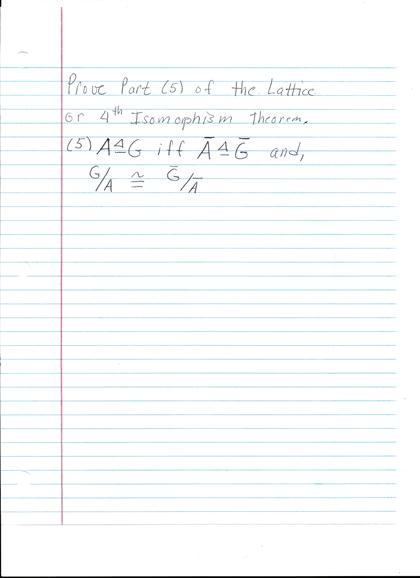 Prove Part (5) of the Lattice
or 4th Isomophism Theorem.
(5) A ⊴ G iff Ā ⊴ Ḡ and,
G/A ≅ Ḡ/Ā